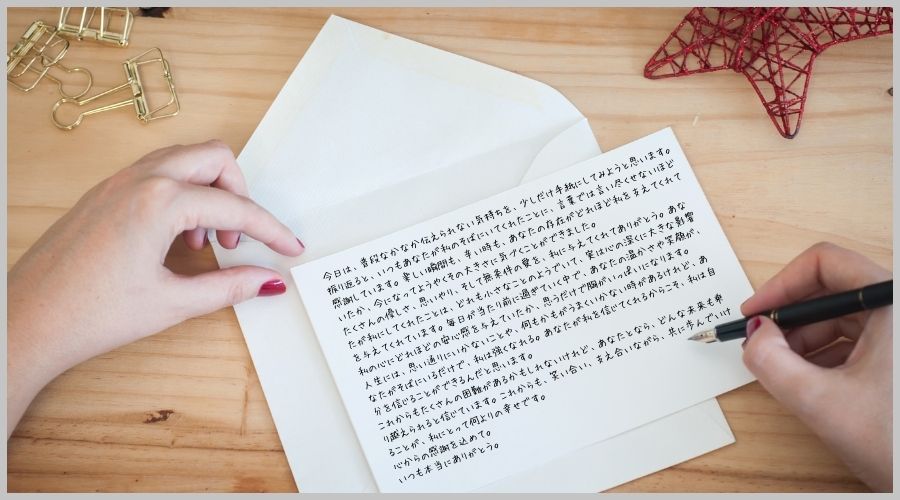 今日は、普段なかなか伝えられない気持ちを、少しだけ手紙にしてみようと思います。
振り返ると、いつもあなたが私のそばにいてくれたことに、言葉では言い尽くせないほど
感謝しています。楽しい瞬間も、辛い時も、あなたの存在がどれほど私を支えてくれて
いたか、今になってようやくその大きさに気づくことができました。
たくさんの優しさ、思いやり、そして無条件の愛を、私に与えてくれてありがとう。あな
たが私にしてくれたことは、どれも小さなことのようでいて、実は心の深くに大きな影響
を与えてくれています。毎日が当たり前に過ぎていく中で、あなたの温かさや笑顔が、
私の心にどれほどの安心感を与えていたか、思うだけで胸がいっぱいになります。
人生には、思い通りにいかないことや、何もかもがうまくいかない時があるけれど、あ
なたがそばにいるだけで、私は強くなれる。あなたが私を信じてくれるからこそ、私は自
分を信じることができるんだと思います。
これからもたくさんの困難があるかもしれないけれど、あなたとなら、どんな未来も乗
り越えられると信じています。これからも、笑い合い、支え合いながら、共に歩んでいけ
ることが、私にとって何よりの幸せです。
心からの感謝を込めて。
いつも本当にありがとう。